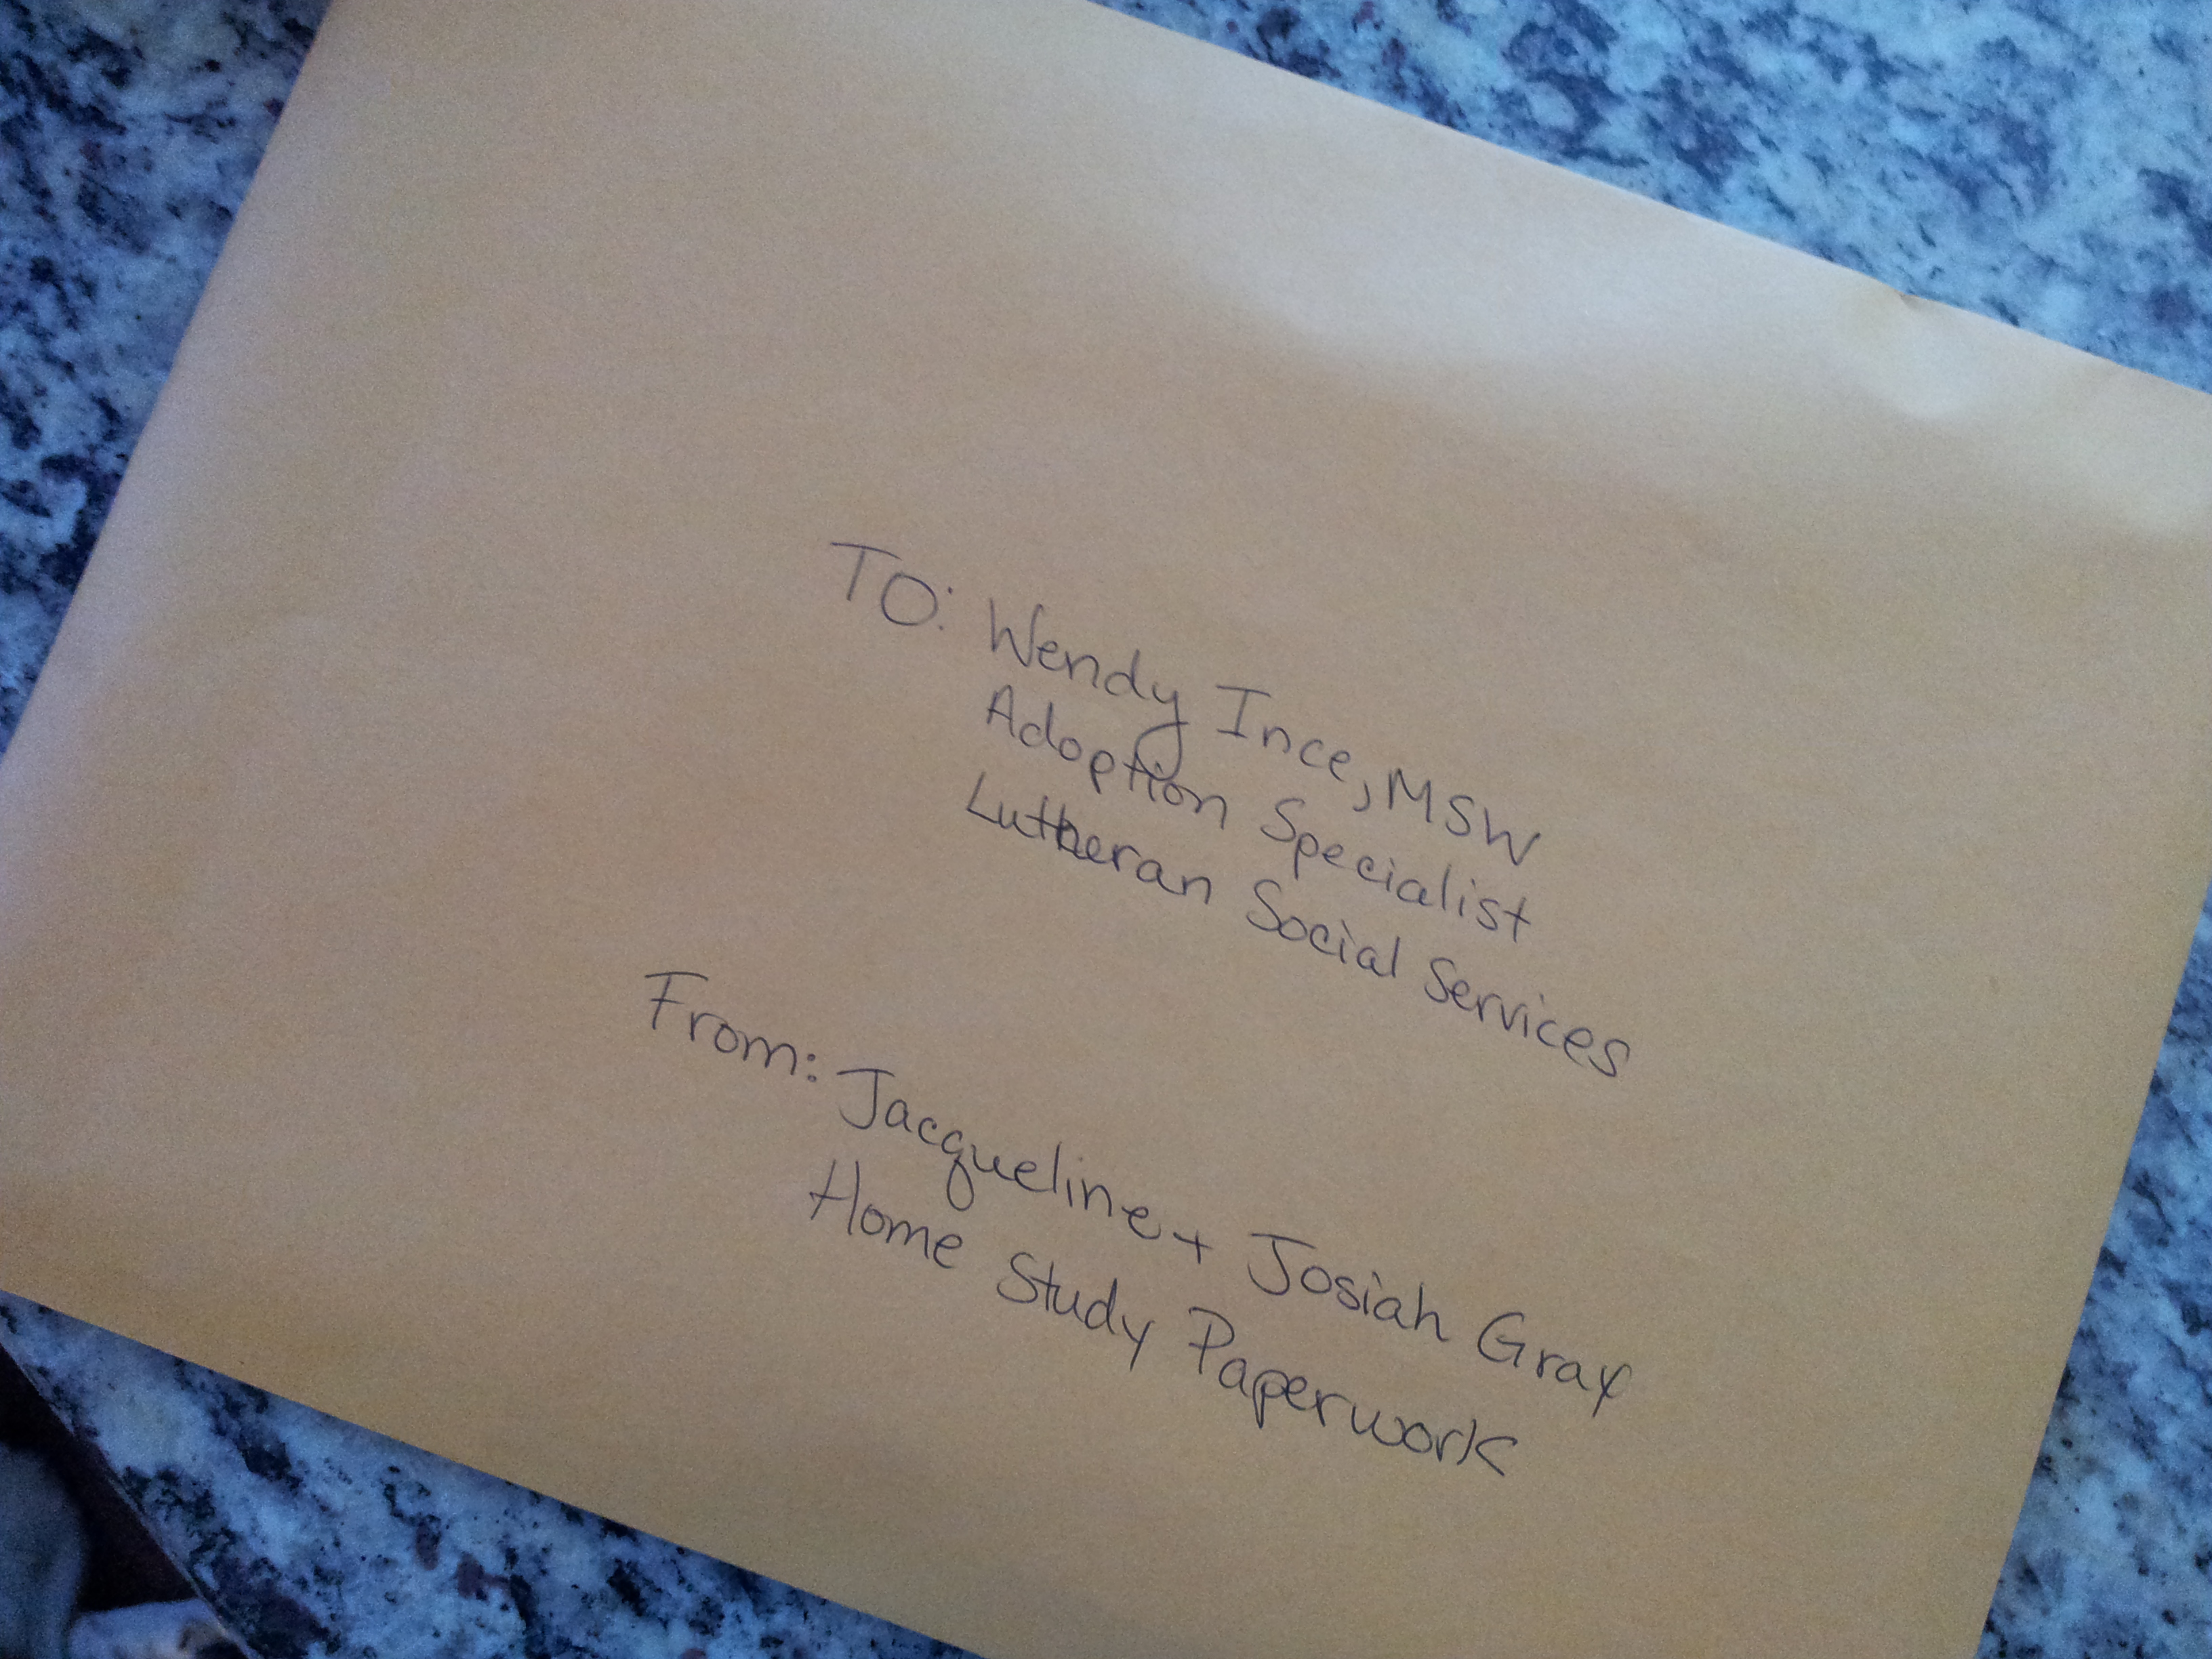 TO: Wendy Ince, MSW
Adoption Specialist
Lutheran Social Services
From: Jacqueline + Josiah Gray
Home Study Paperwork